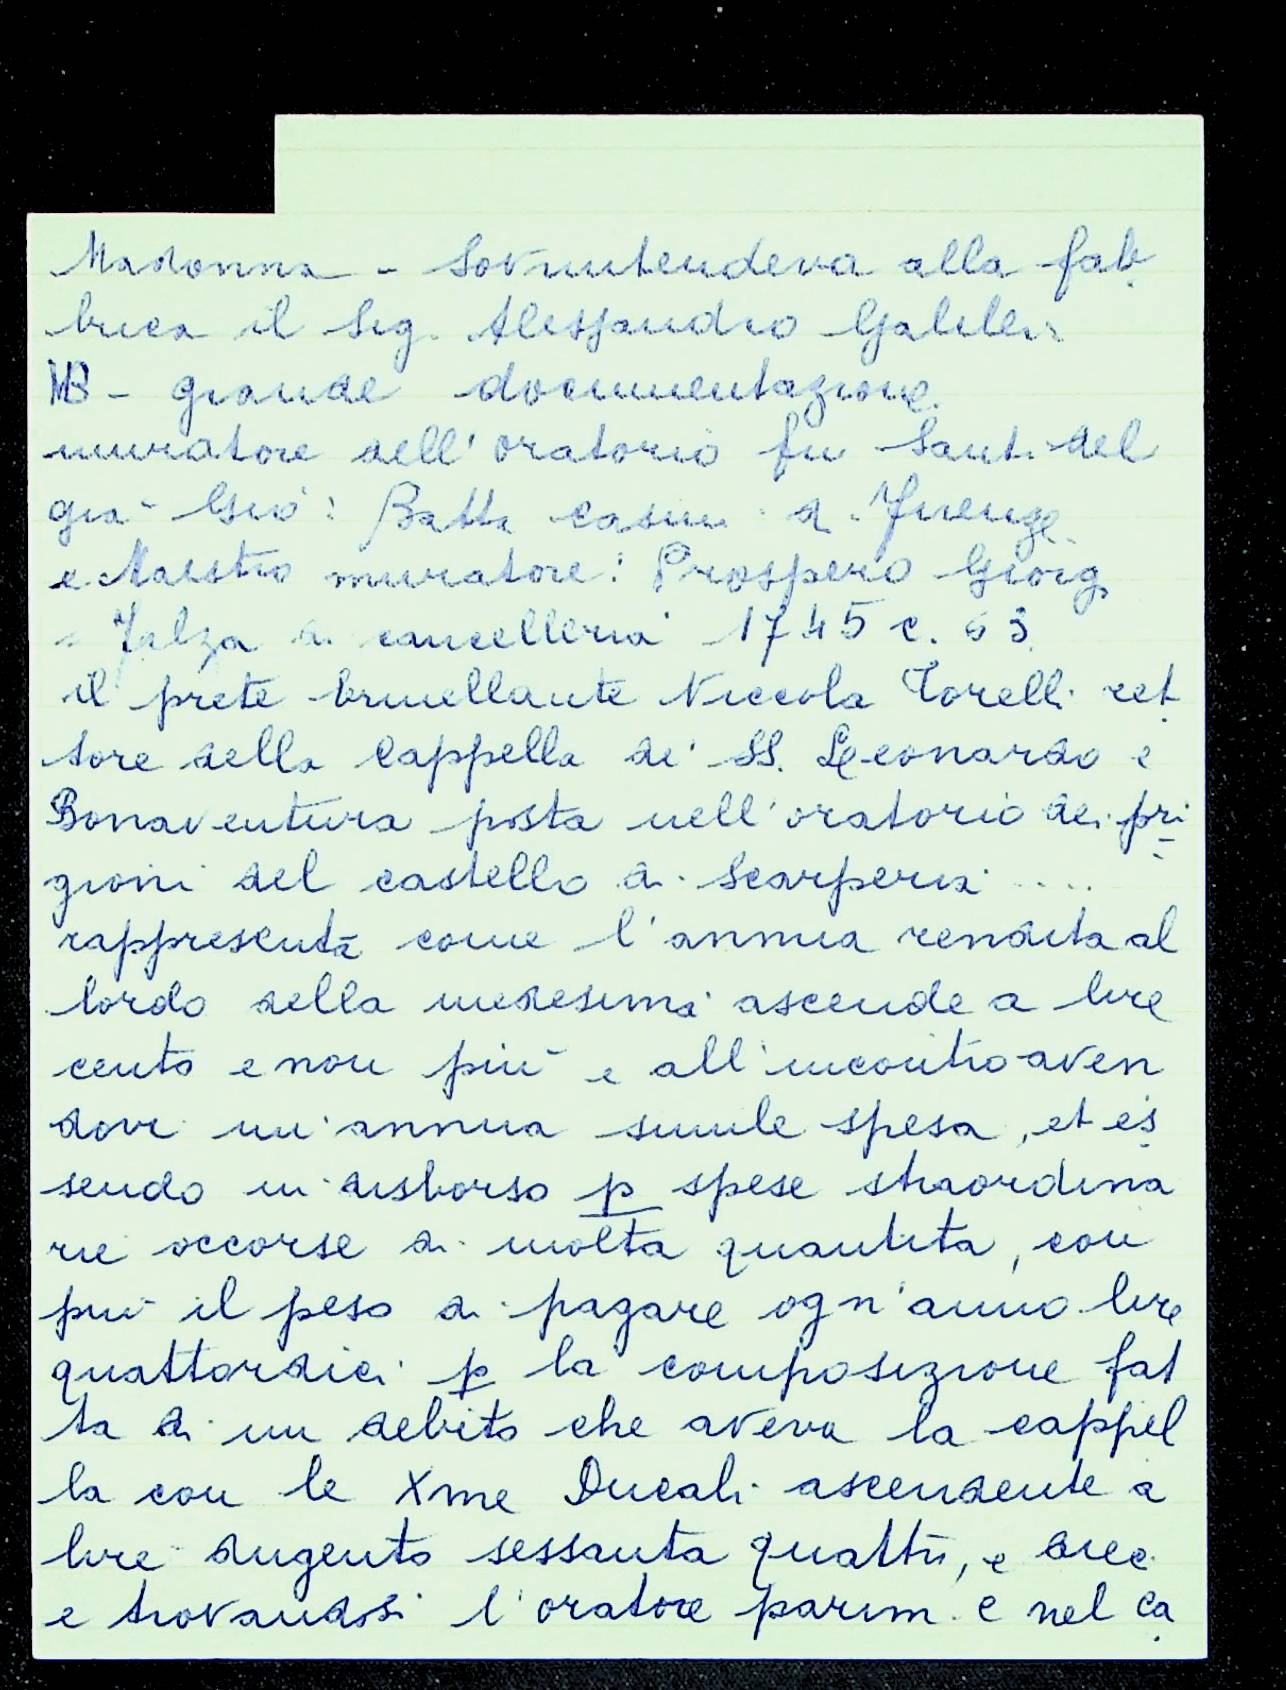 Madonna - Sovrintendeva alla fab
brica il Sig. Alessandro Galilei
NB - grande documentazione
muratore dell'oratorio fu Santi del
già Gio: Batta Casini di Firenze
e Maestro muratore: Prospero Giorgi
Filza di cancelleria 1745 c. 63
il prete Niccola Torelli ret
tore della Cappella de' SS. Leonardo e
Bonaventura posta nell'oratorio dei pri
gioni del castello di Scarperia ....
rappresenta come l'annua rendita al
lordo della medesima ascende a lire
cento e non più e all'incontro aven
dovi un'annua simile spesa, et es
sendo in disborso p spese straordina
rie occorse di molta quantità, con
più il peso di pagare ogn'anno lire
quattordici p la composizione fat
ta di un debito che aveva la cappel
la con le Xme Ducali ascendente a
lire dugento sessanta quattro, e
e trovandosi l'oratore parim. e nel ca